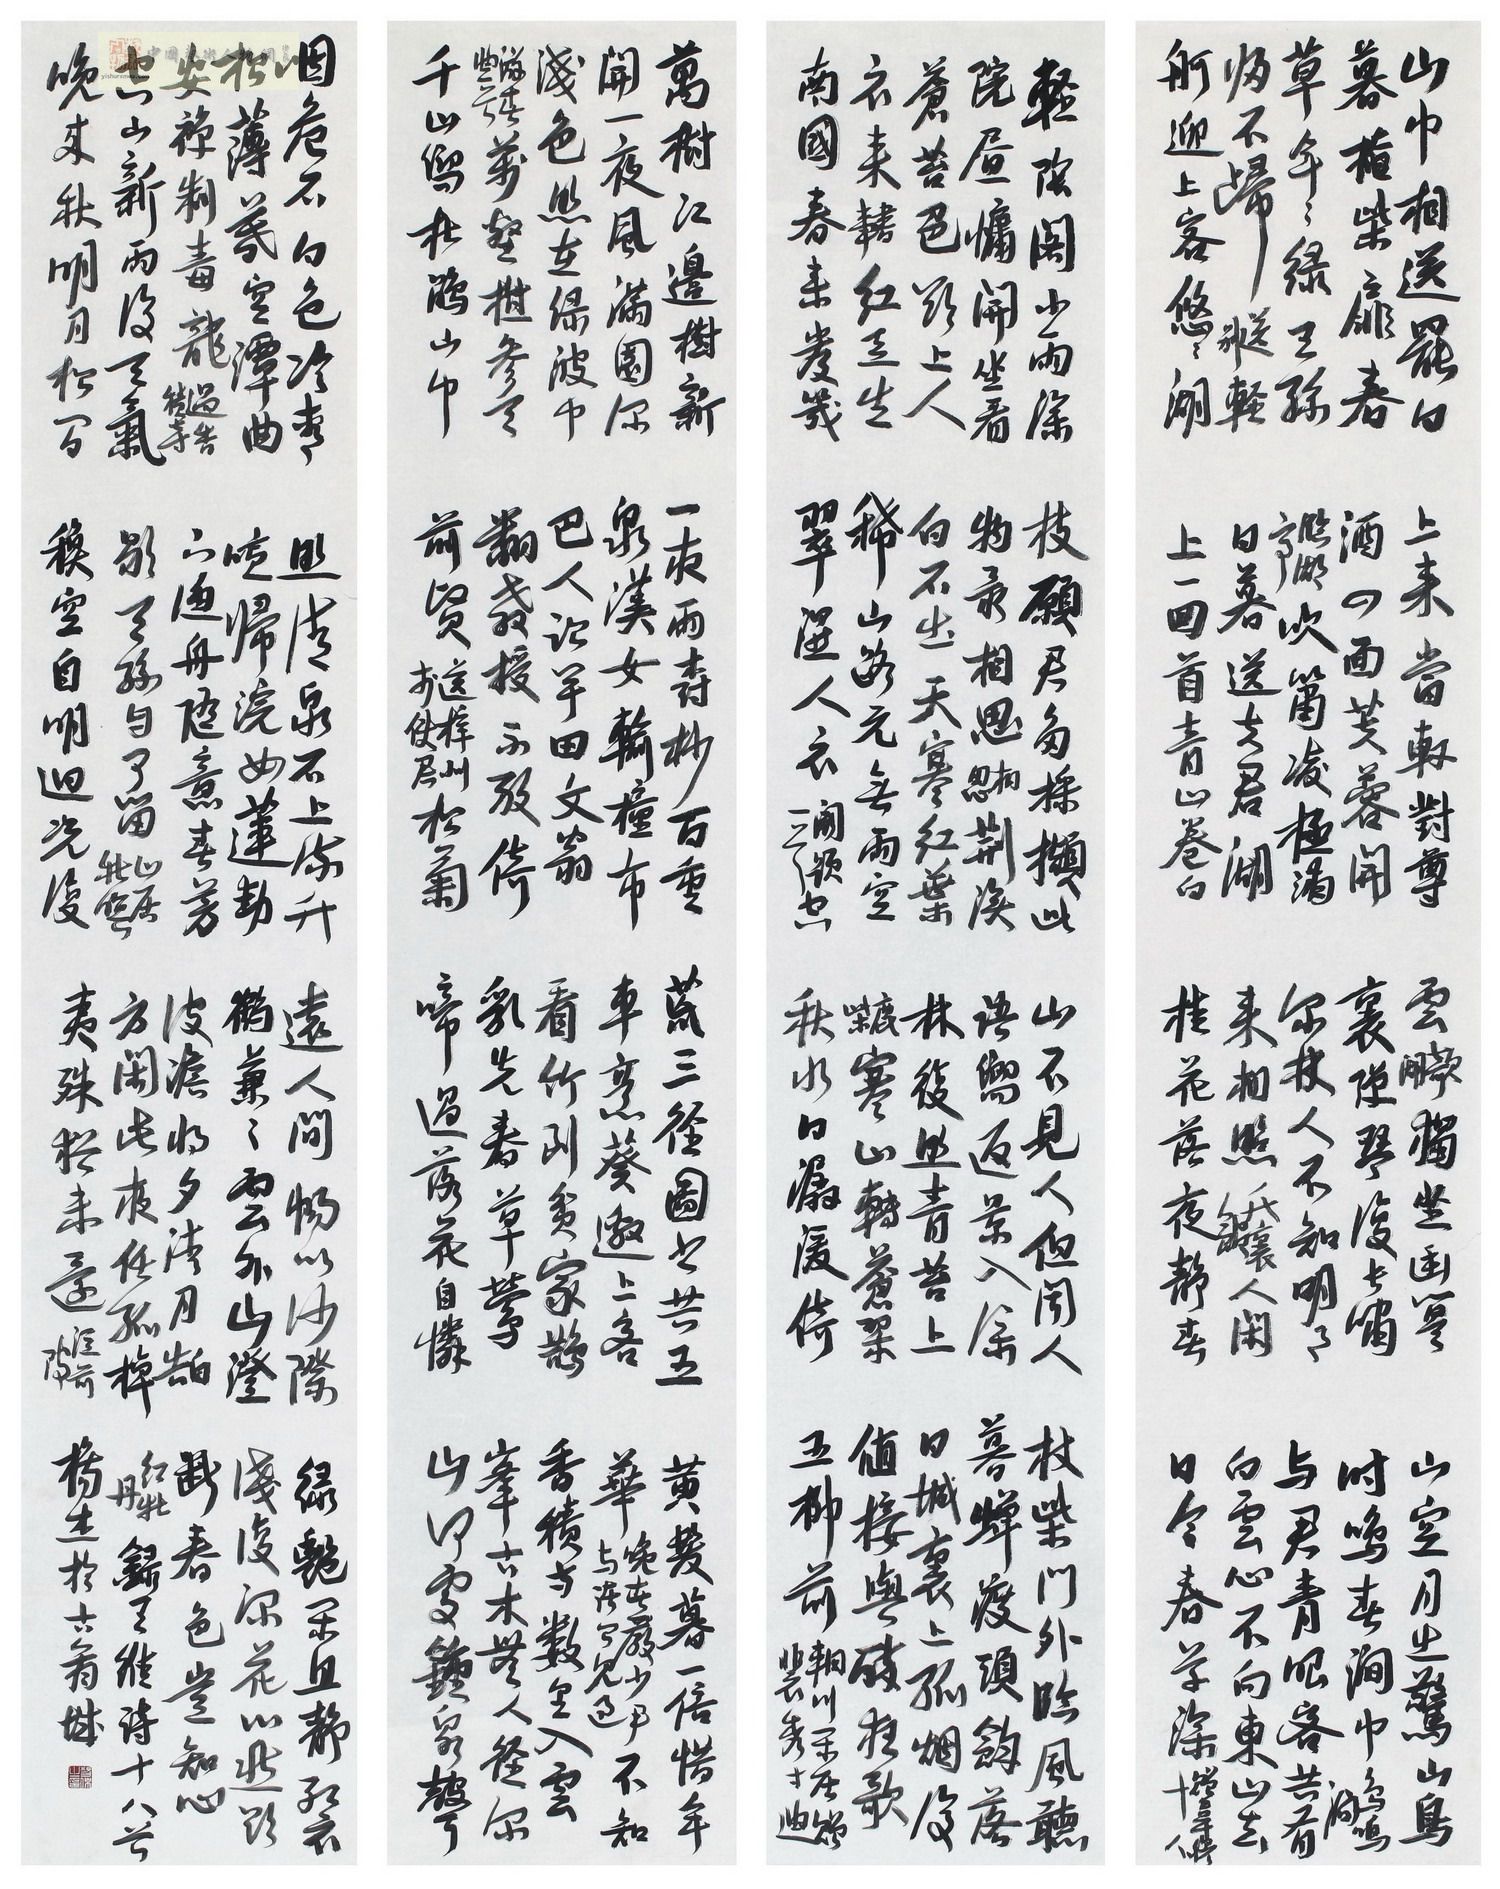 山中相送罷日
暮掩柴扉春
草年々綠王孫
歸不歸 送別 輕
舸迎上客悠々湖
上来當軒對尊
酒四面芙蓉開
臨湖亭 吹簫凌極浦
日暮送夫君湖
上一回首青山卷白
雲 欹湖 獨坐幽篁
裏彈琴復長嘯
深林人不知明月
来相照 竹里館 人閑
桂花落夜静春
山空月出驚山鳥
时鳴春澗中 鳥鳴澗
与君青眼客共有
白雲心不向東山去
日令春草深 贈韋穆十八
輕陰閣小雨深
院晝慵開坐看
蒼苔色欲上人
衣来 書事 紅豆生
南國春来發幾
枝願君多採擷此
物最相思 相思 荆溪
白石出天寒紅葉
稀山路元無雨空
翠濕人衣 闕題二 空
山不見人但聞人
語響返景入深
林復照青苔上
鹿柴 寒山轉蒼翠
秋水日潺湲倚
杖柴門外臨風聽
暮蟬渡頭餘落
日墟裏上孤烟復
值接輿醉狂歌
五柳前 輞川閑居贈裴秀才迪
萬樹江邊樹新
開一夜風滿園深
淺色照在綠波中
遊春曲 萬壑樹參天
千山響杜鵑山中
一夜雨樹杪百重
泉漢女輸橦布
巴人訟芋田文翁
翻教授不敢倚
前賢 送梓州李使君 松菊
荒三徑圖書共五
車烹葵邀上客
看竹到貧家鵲
乳先春草鶯
啼過落花自憐
黄髮暮一倍惜年
華 晚春嚴少尹与諸公見過 不知
香積寺數里入雲
峯古木無人徑深
山何處鐘泉聲
咽危石日色冷青
松薄暮空潭曲
安禪制毒龍 過香積寺
空山新雨後天氣
晚来秋明月松間
照清泉石上流竹
喧歸浣女蓮動
下漁舟隨意春芳
歇王孫自可留 山居秋暝
秋空自明迥况復
遠人間暢以沙際
鶴兼之雲外山澄
波澹將夕清月皓
方閑此夜任孤棹
夷猶殊未還 泛前陂
綠艷閑且静紅衣
淺復深花心愁欲
斷春色豈知心
紅牡丹 錄王維詩十八首
楊杰於古